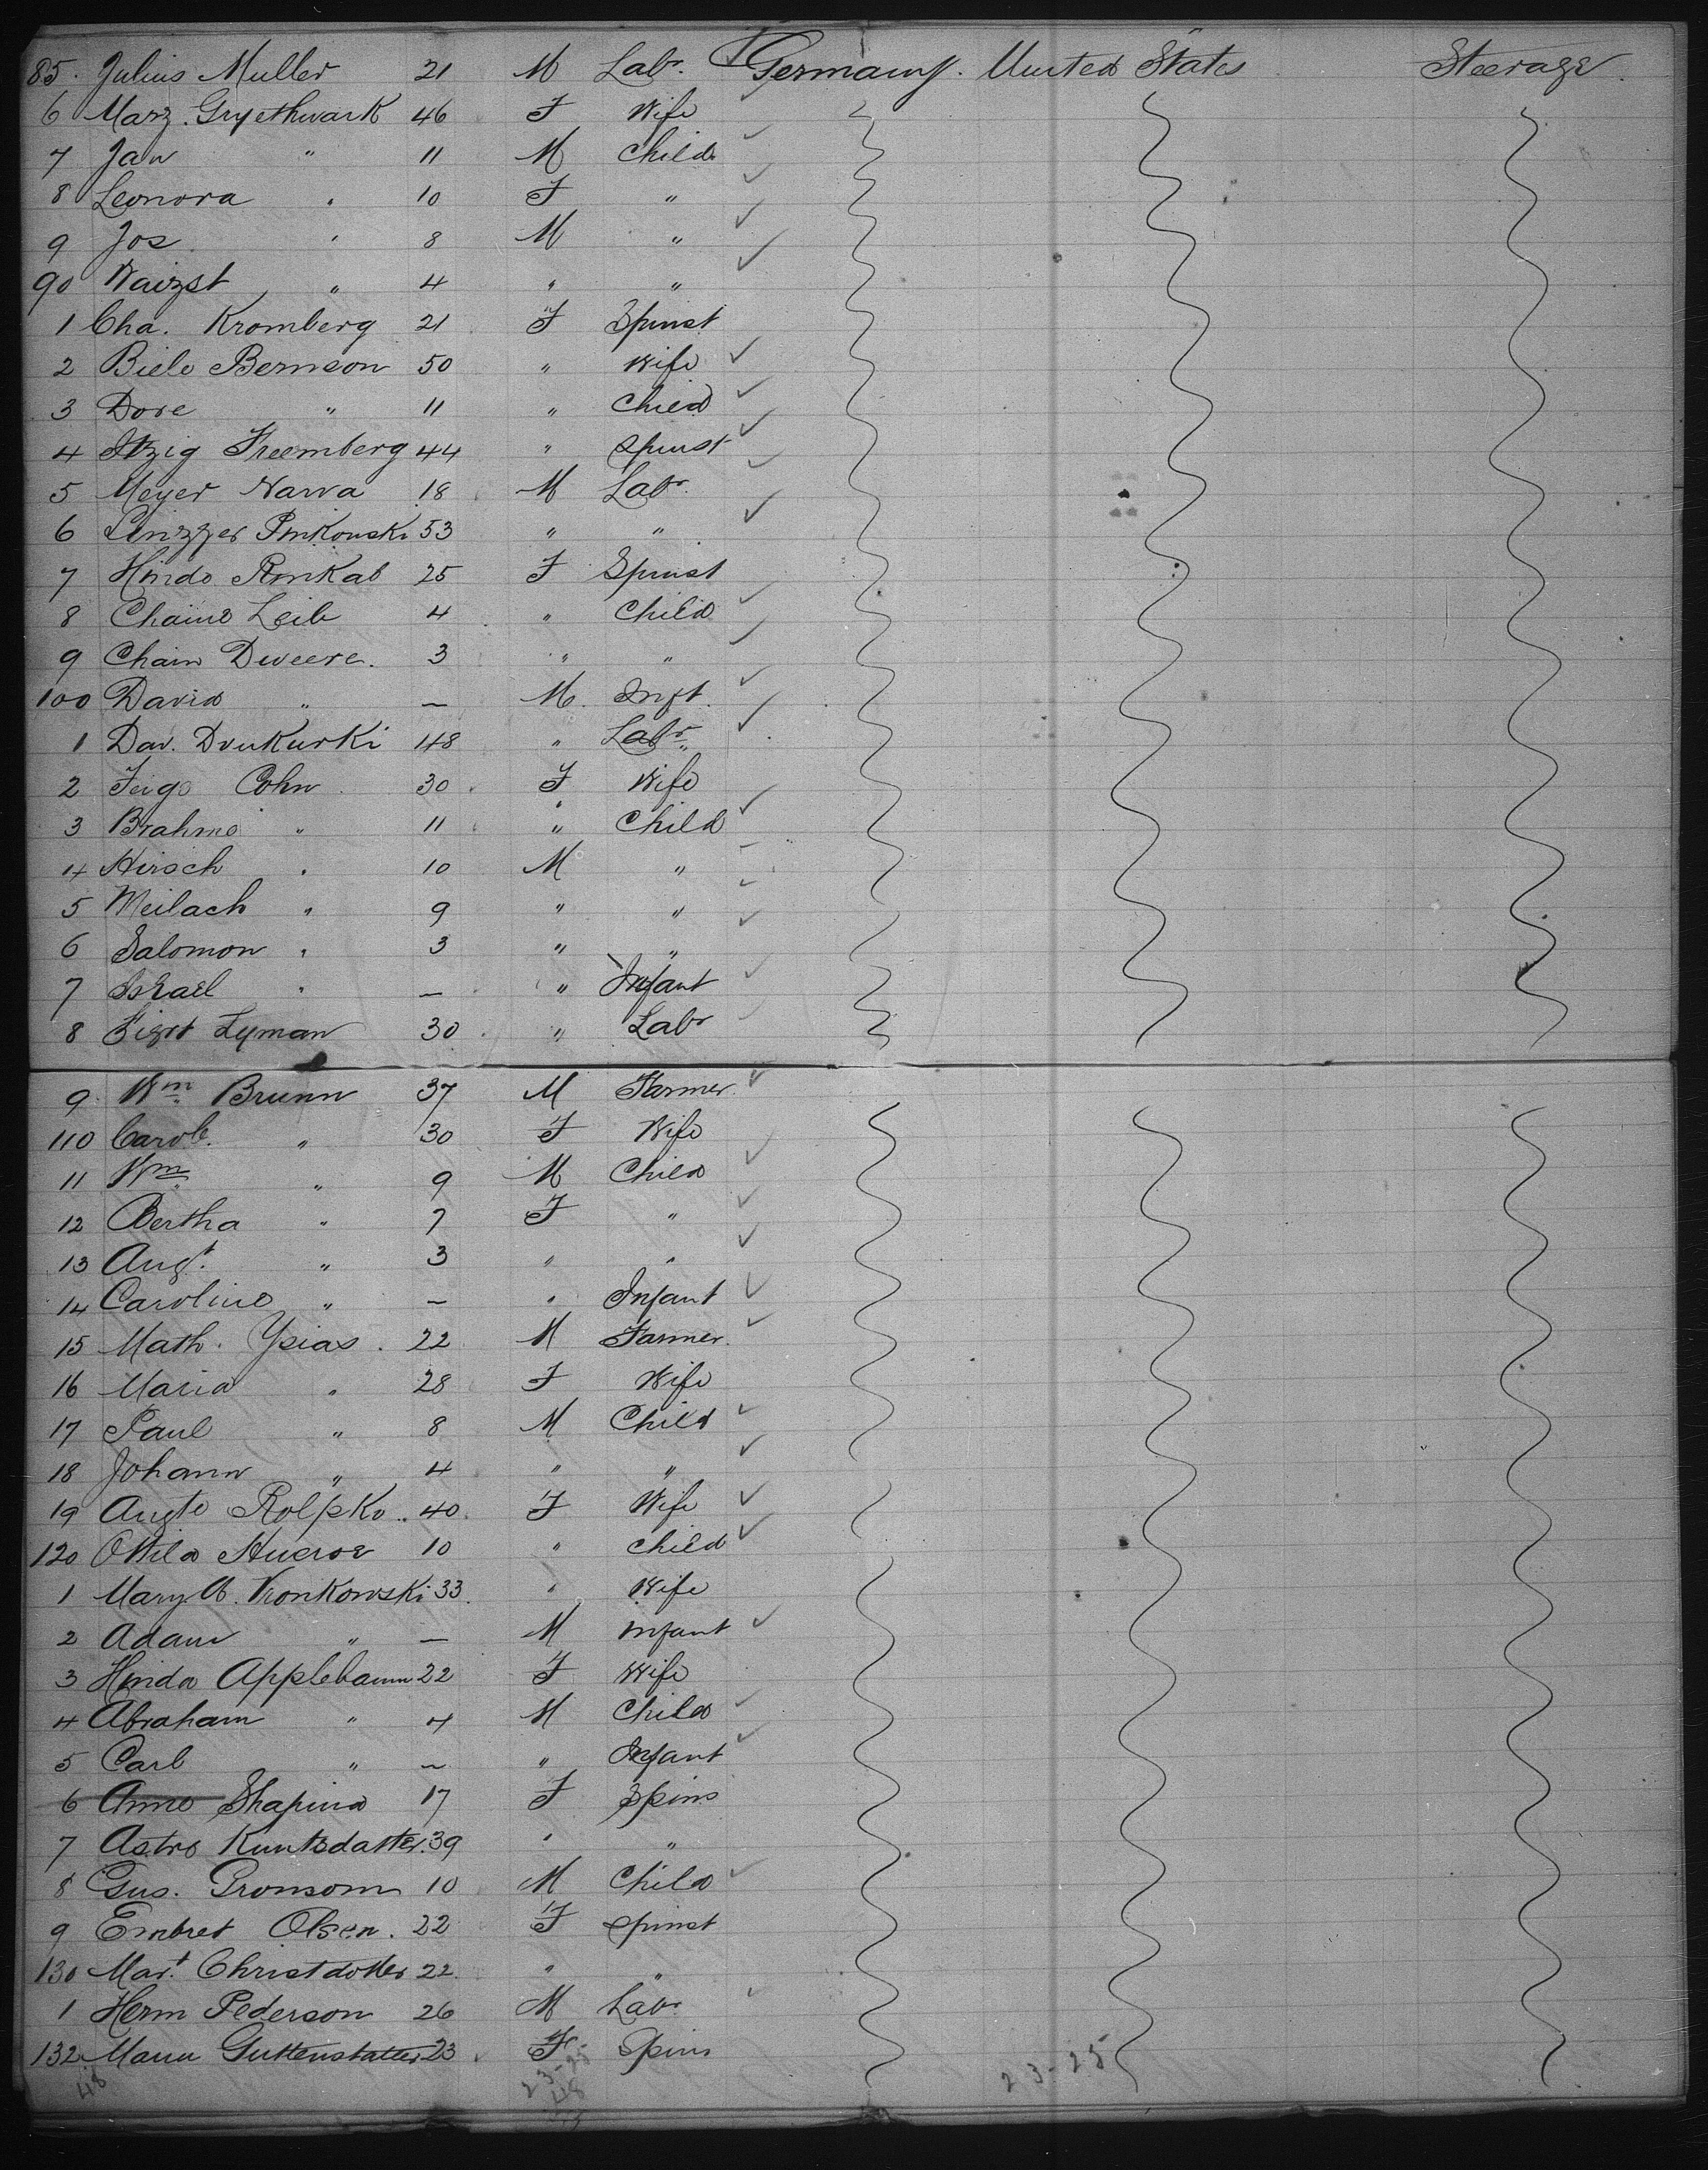 85. Julius Muller 21 M Labr. Germany. United States Steerage.
6 Marz. Gryethwark 46 F Wife
7 Jan " 11 M Child
8 Leonora " 10 F "
9 Jos " 8 M "
90 Waizst " 4 " "
1 Cha. Kromberg 21 F Spinst
2 Biele Bernson 50 " Wife
3 Dore " 11 " Child
4 Itzig Freemberg 44 " Spinst
5 Meyer Narva 18 M Labr.
6 Pinkouski 53 " "
7 Hinde Pinkab 25 F Spinst
8 Chaine Leib 4 " Child
9 Chain Dweere. 3 " "
100 David " — M. Inft.
1 Dav. Drukurki 48 " Labr.
2 Feige Cohn 30 F Wife
3 Brahme " 11 " Child
4 Hirsch " 10 M "
5 Meilach " 9 " "
6 Salomon " 3 " "
7 Israel " — " Infant
8 Lyman 30 " Labr
9 Wm Brunn 37 M Farmer.
110 Carole. " 30 F Wife
11 Wm " 9 M Child
12 Bertha " 7 F "
13 Augt. " 3 " "
14 Caroline " — " Infant
15 Math. Ysias. 22 M Farmer.
16 Maria " 28 F Wife
17 Paul " 8 M Child
18 Johann " 4 " "
19 Augte Rolfko.. 40. F Wife
120 Ottila 10 " Child
1 Mary A. Vronkowski 33. " Wife
2 Adam " — M Infant
3 Hinda Applebaum 22 F Wife
4 Abraham " 4 M Child
5 Carl " — " Infant
6 Anne Shapira 17 F Spins
7 Astro Kuntsdatter. 39 " "
8 Gus. Pronsom 10 M Child
9 Embret Olsen. 22 F Spinst
130 Mart. Christdotter 22. " "
1 Herm Pederson 26 M Labr.
132. Maria Guttenstatter 23 F Spins
48 23-25 23-25
48